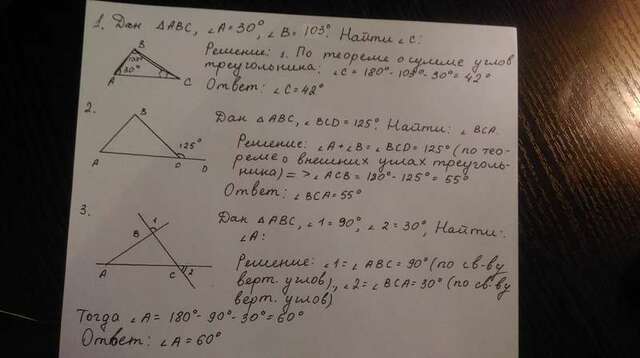 1. Дан ΔABC, ∠A=30°, ∠B=103°. Найти ∠C:
Решение: 1. По теореме о сумме углов
треугольника: ∠C=180°-103°-30°=42°
Ответ: ∠C=42°
B
103°
30°
A
C
2.
Дан ΔABC, ∠BCD=125°. Найти: ∠BCA.
Решение: ∠A+∠B=∠BCD=125° (по тео-
реме о внешних углах треуголь-
ника)=>∠ACB=120°-125°=55°
Ответ: ∠BCA=55°
B
125°
A
D
3.
Дан ΔABC, ∠1=90°, ∠2=30°, Найти:
∠A:
Решение: ∠1=∠ABC=90° (по св-ву
верт. углов)., ∠2=∠BCA=30° (по св-ву
верт. углов)
1
B
A
C
2
Тогда ∠A=180°-90°-30°=60°
Ответ: ∠A=60°